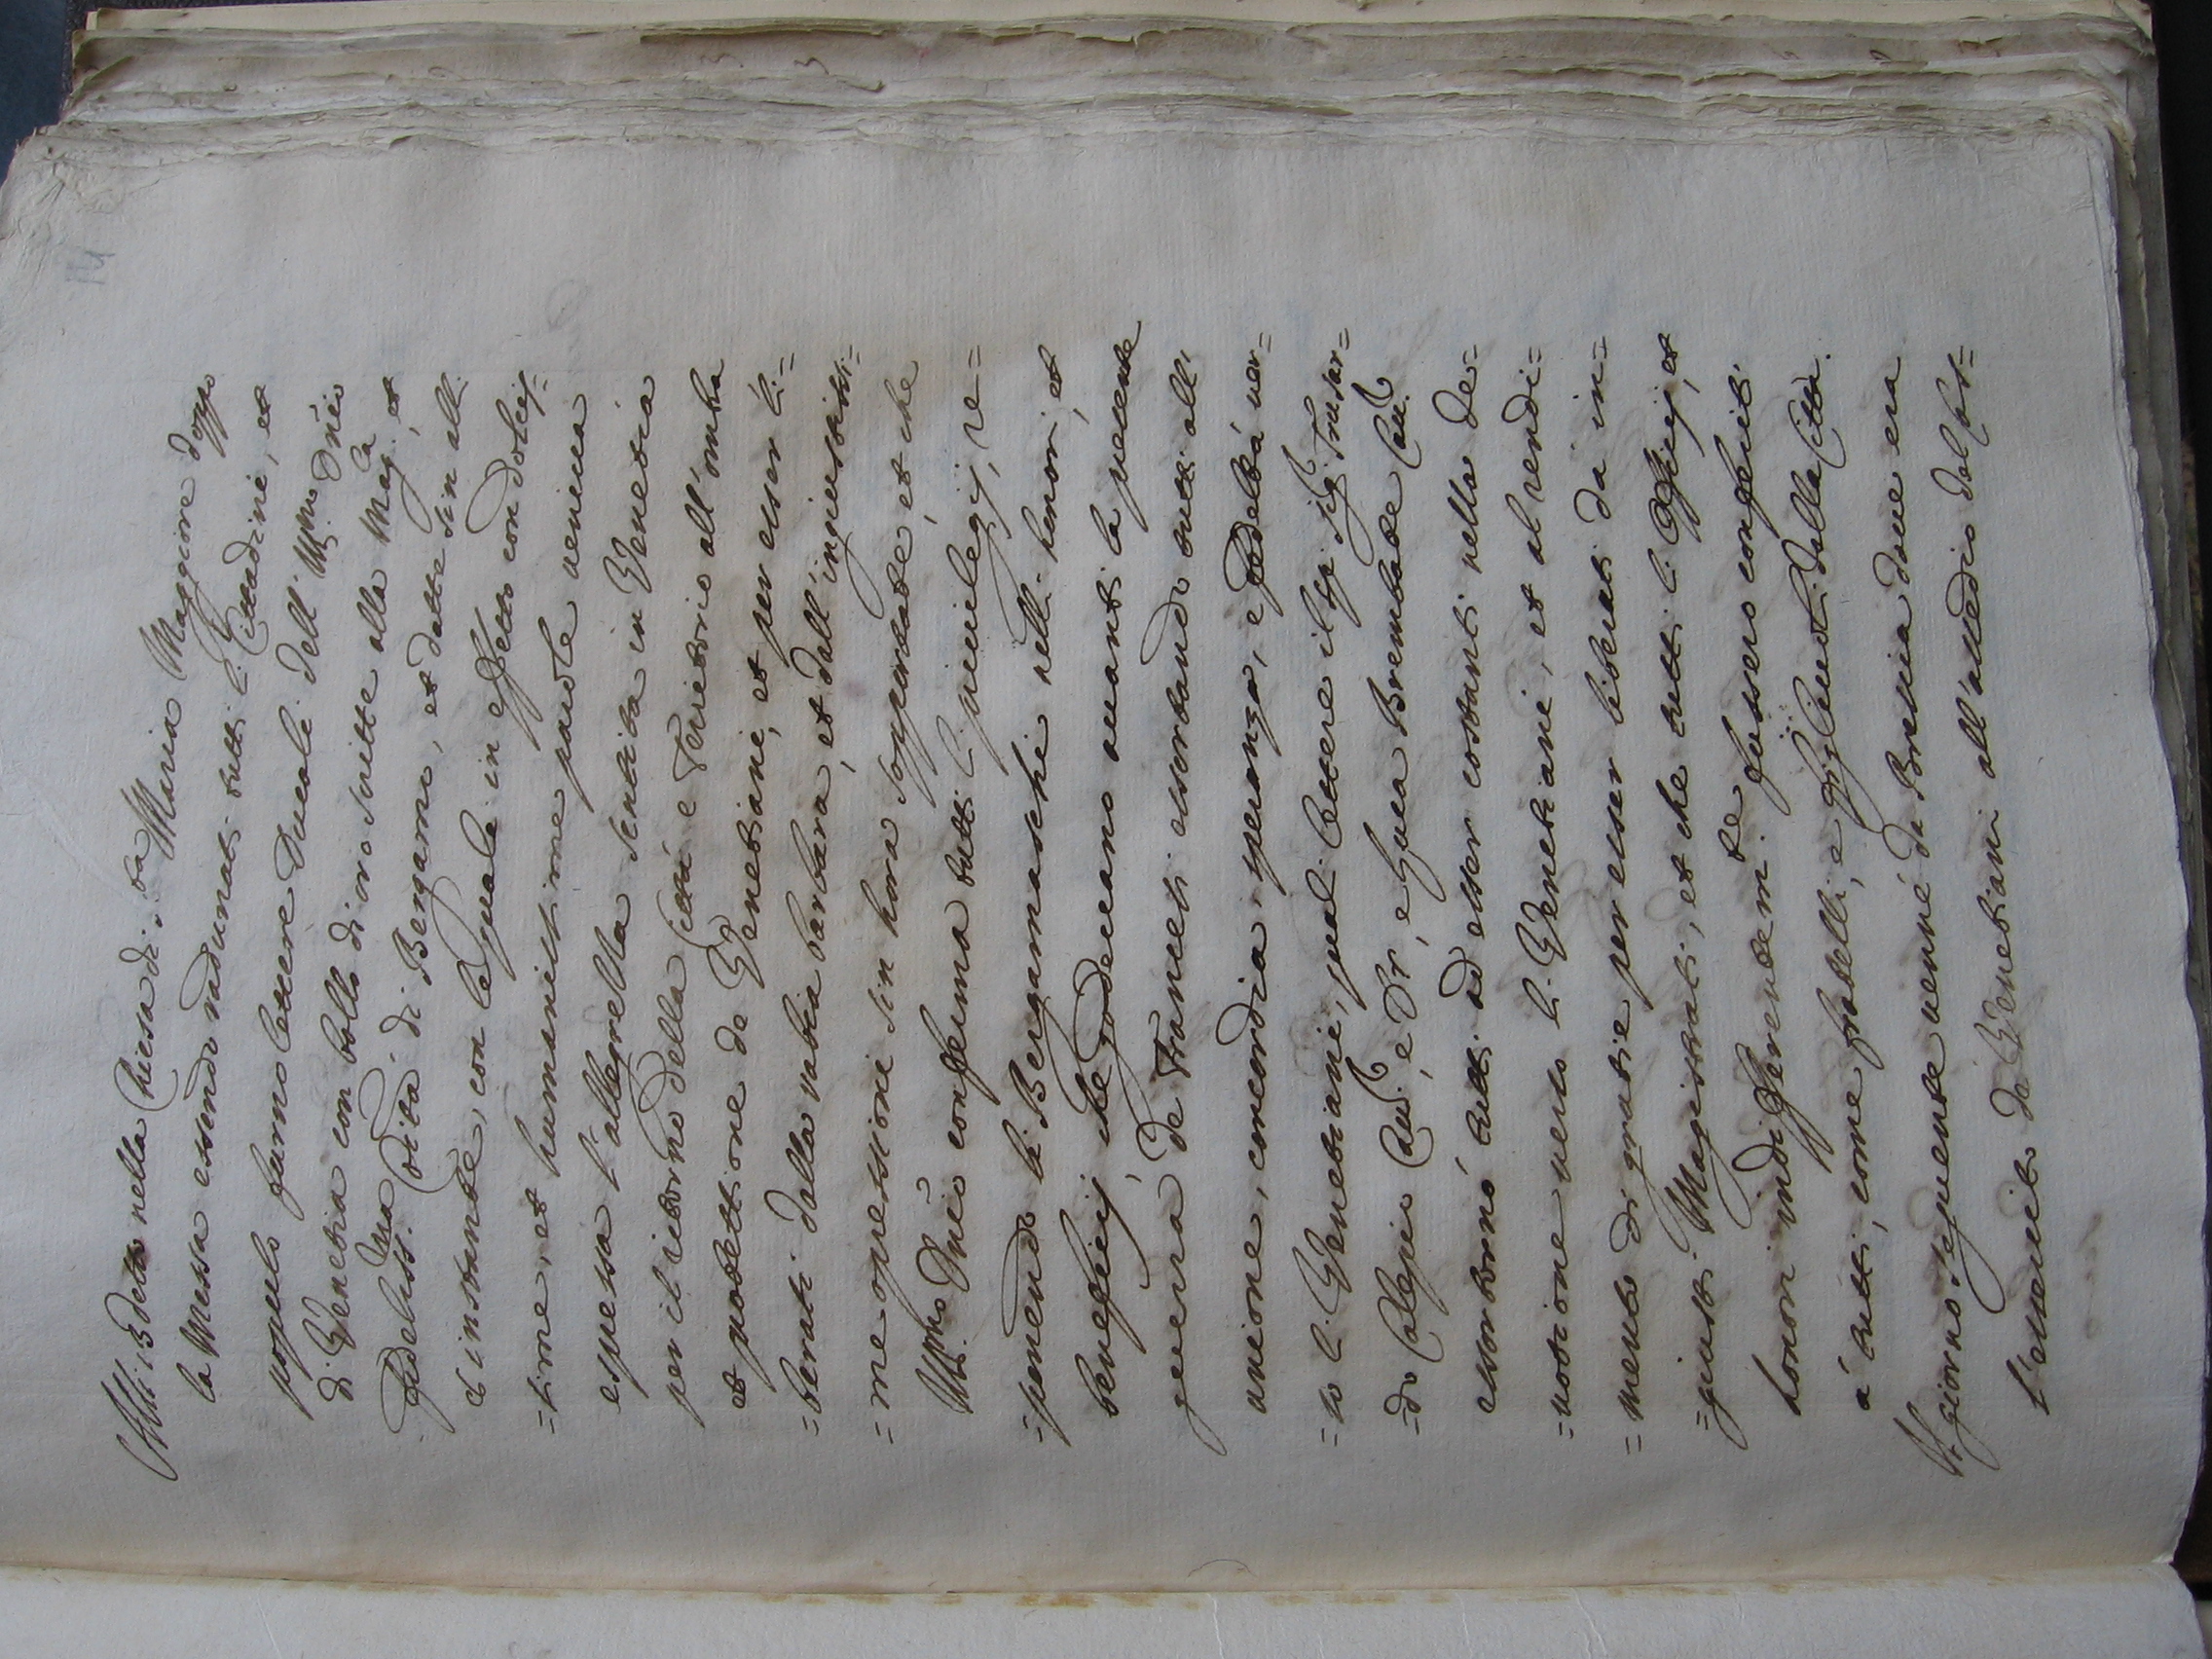 114
Alli 13 detto nella Chiesa di s.ta Maria Maggiore doppo
la Messa essendo radunati tutti li Cittadini, et
popolo furno lettere Ducali dell' Ill.mo Dnio
di Venetia con bollo di oro scritte alla Mag.ca, et
fideliss.ma Città di Bergamo, et datte sin alli
con le quale in effetto con dolcis=
=sime, et humanissime parole veniva
espressa l'allegrezza sentita in Venetia
per il ritorno della Città e Territorio all'ombra
et protettione de Venetiani, et per esser li=
=berati dalla rabia barbara, et dall'ingiustissi=
=me opressioni sin hora sopportate, et che
Ill.mo Dnio conferma tutti li privilegij, re=
=ponendo li Bergamaschi nelli honori, et
beneficij che godevano avanti la presente
guerra de Francesi essortando tutti all'
unione, concordia, speranza, e fedeltà ver=
=so li Venetiani, qual lettere il Sig.r Trusar=
=do Calepio Cav.r, e Dr., e Luca Brembate Cav.r
essortorno tutti ad esser costanti nella de=
=votione verso li Venetiani, et al rendi=
=mento di gratie per esser liberati da in=
=giusti Magistrati, et che tutti li Officij, et
honori indiferentem.te fussero conferiti
à tutti, come fratelli, e figliuoli della Città.
Il giorno seguente venne da Bressia dove era
l'essercito de Venetiani all'assedio del Cas=